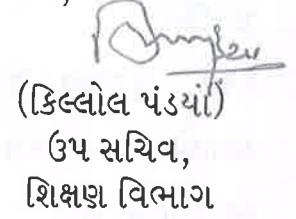 (કિલ્લોલ પંડયાં)
ઉપ સચિવ,
શિક્ષણ વિભાગ